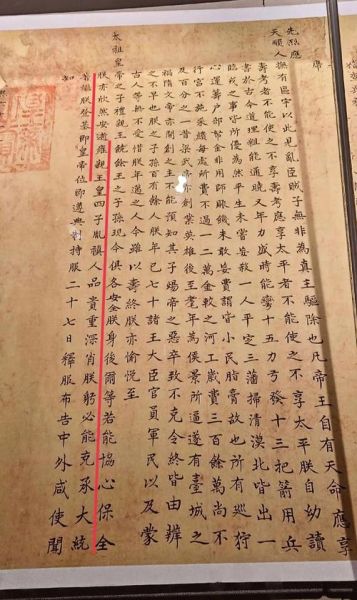 先烈應
天順人撫有區宇以此見亂臣賊子無非為真主驅除也凡帝王自有天命應享
壽考者不能使之不享壽考應享太平者不能使之不享太平朕自幼讀
書於古今道理粗能通曉又年力盛時能彎十五力弓發十三把箭用兵
臨戎之事皆所優為然平生未嘗妄殺一人平定三藩掃清漠北皆出一
心運籌戶部帑金非用師賑饑未敢妄費謂皆小民脂膏故也所有巡狩
行宮不施采繢每處所費不過一二萬金較之河工歲費三百餘萬尚不
及百分之一昔梁武帝亦創業英雄後至耄年為侯景所逼遂有臺城之
禍隋文帝亦開創之主不能預知其子煬帝之惡卒致不克令終皆由辨
之不早也朕之子孫百有餘人朕年已七十諸王大臣官員軍民以及蒙
古人等無不愛惜朕年邁之人今雖以壽終朕亦愉悅至
太祖皇帝之子禮親王饒餘王之子孫現今俱各安全朕身後爾等若能協心保全
朕亦欣然安逝雍親王皇四子胤禛人品貴重深肖朕躬必能克承大統
著繼朕登基即皇帝位即遵典制持服二十七日釋服布告中外咸使聞
知